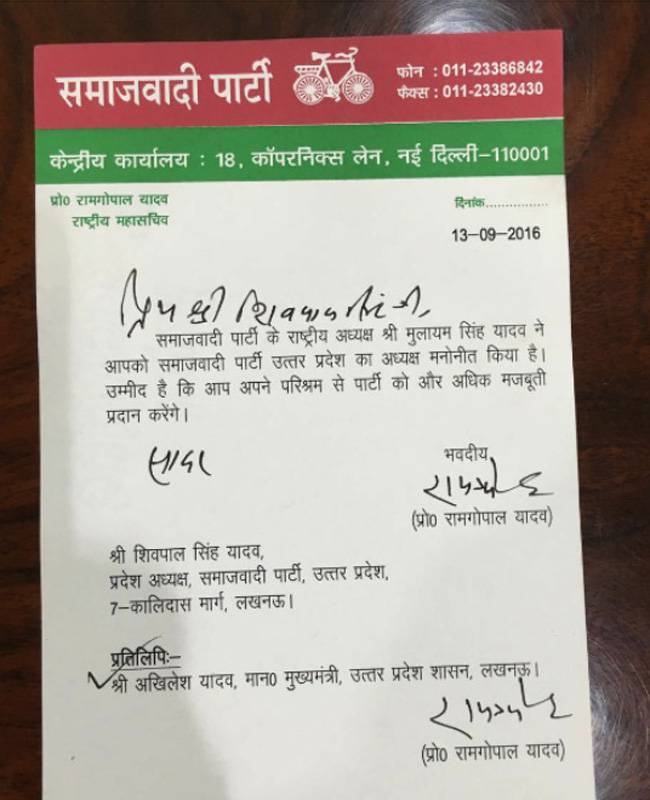 समाजवादी पार्टी
फोन : 011-23386842
फैक्स : 011-23382430
केन्द्रीय कार्यालय : 18, कॉपरनिक्स लेन, नई दिल्ली-110001
प्रो0 रामगोपाल यादव
राष्ट्रीय महासचिव
दिनांक...............
13-09-2016
प्रिय श्री शिवपाल सिंह जी,
समाजवादी पार्टी के राष्ट्रीय अध्यक्ष श्री मुलायम सिंह यादव ने
आपको समाजवादी पार्टी उत्तर प्रदेश का अध्यक्ष मनोनीत किया है।
उम्मीद है कि आप अपने परिश्रम से पार्टी को और अधिक मजबूती
प्रदान करेंगे।
सादर
भवदीय
(प्रो0 रामगोपाल यादव)
श्री शिवपाल सिंह यादव,
प्रदेश अध्यक्ष, समाजवादी पार्टी, उत्तर प्रदेश,
7-कालिदास मार्ग, लखनऊ।
प्रतिलिपिः-
श्री अखिलेश यादव, मान0 मुख्यमंत्री, उत्तर प्रदेश शासन, लखनऊ।
(प्रो0 रामगोपाल यादव)